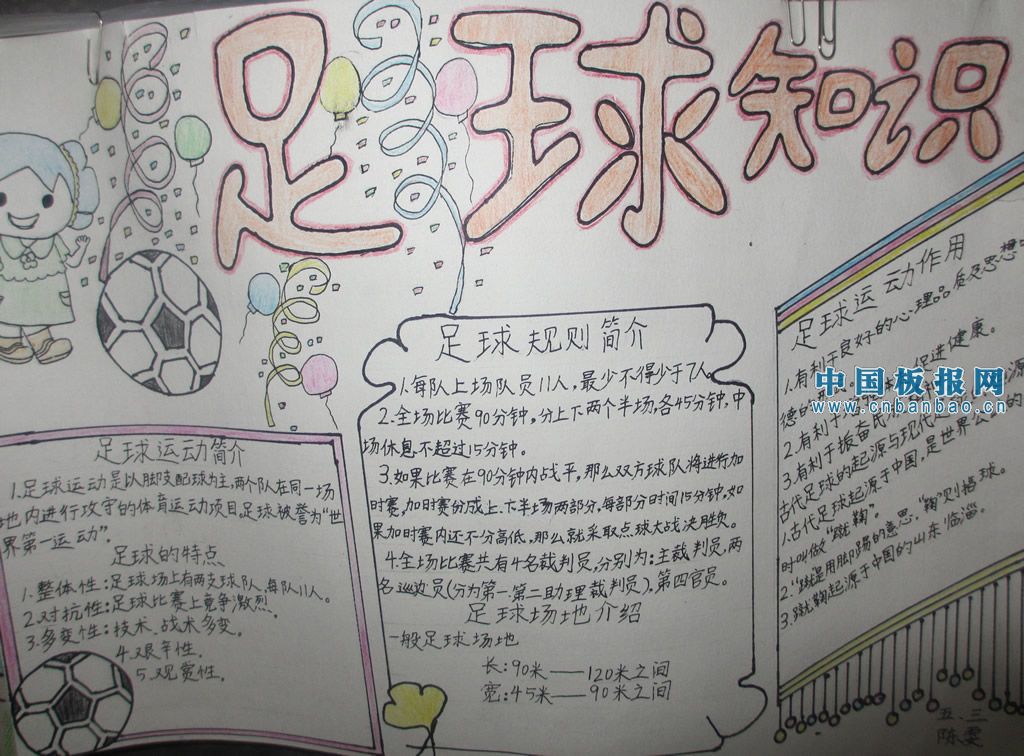 足球知识
足球运动简介
1.足球运动是以脚支配球为主,两个队在同一场
地内进行攻守的体育运动项目,足球被誉为“世
界第一运动”。
足球的特点
1.整体性:足球场上有两支球队,每队11人。
2.对抗性:足球比赛上竞争激烈。
3.多变性:技术、战术多变。
4.艰辛性。
5.观赏性。
足球规则简介
1.每队上场队员11人,最少不得少于7人。
2.全场比赛90分钟,分上下两个半场,各45分钟,中
场休息不超过15分钟。
3.如果比赛在90分钟内战平,那么双方球队将进行加
时赛,加时赛分成上、下半场两部分,每部分时间15分钟,如
果加时赛内还不分高低,那么就采取点球大战决胜负。
4.全场比赛共有4名裁判员,分别为:主裁判员,两
名巡边员(分为第一.第二助理裁判员),第四官员。
足球场地介绍
一般足球场地
长:90米——120米之间
宽:45米——90米之间
足球运动作用
1.有利于良好的心理品质及思想
德的
2.有利于 促进健康。
3.有利于振奋民
古代足球的起源与现代足球的 源
1.古代足球起源于中国,是世界公 的
时叫做“蹴鞠”。
2.“蹴”是用脚踢的意思,“鞠”则指球。
3.蹴鞠起源于中国的山东临淄。
中国板报网
www.cnbanbao.cn
五.三
陈雯